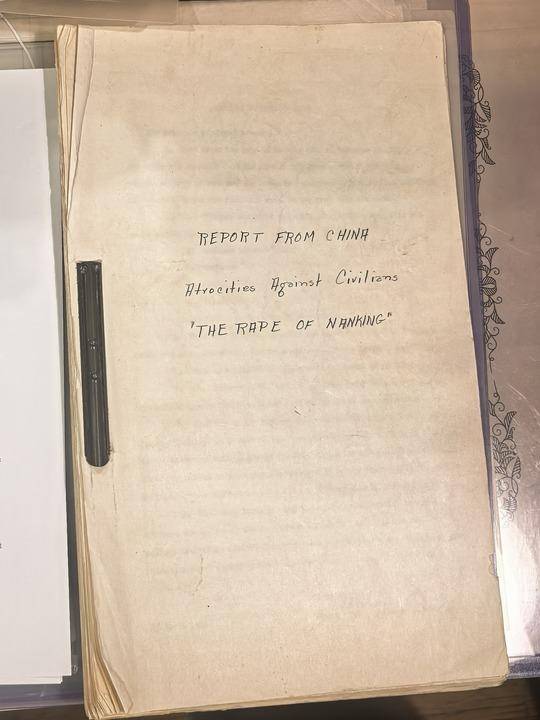 REPORT FROM CHINA
Atrocities Against Civilians
"THE RAPE OF NANKING"